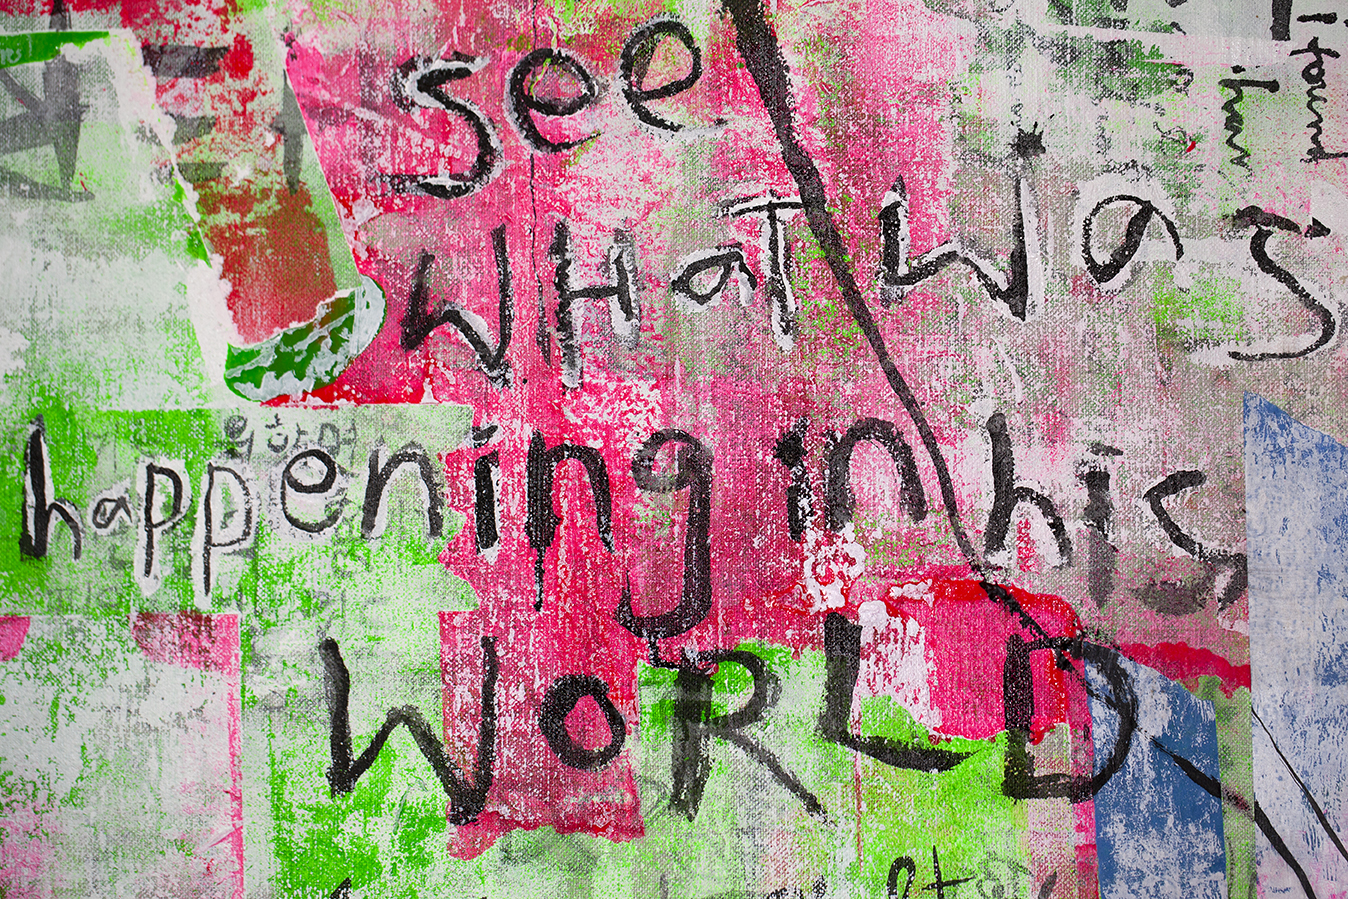 see
WHaT was
happening in his
WoRLD